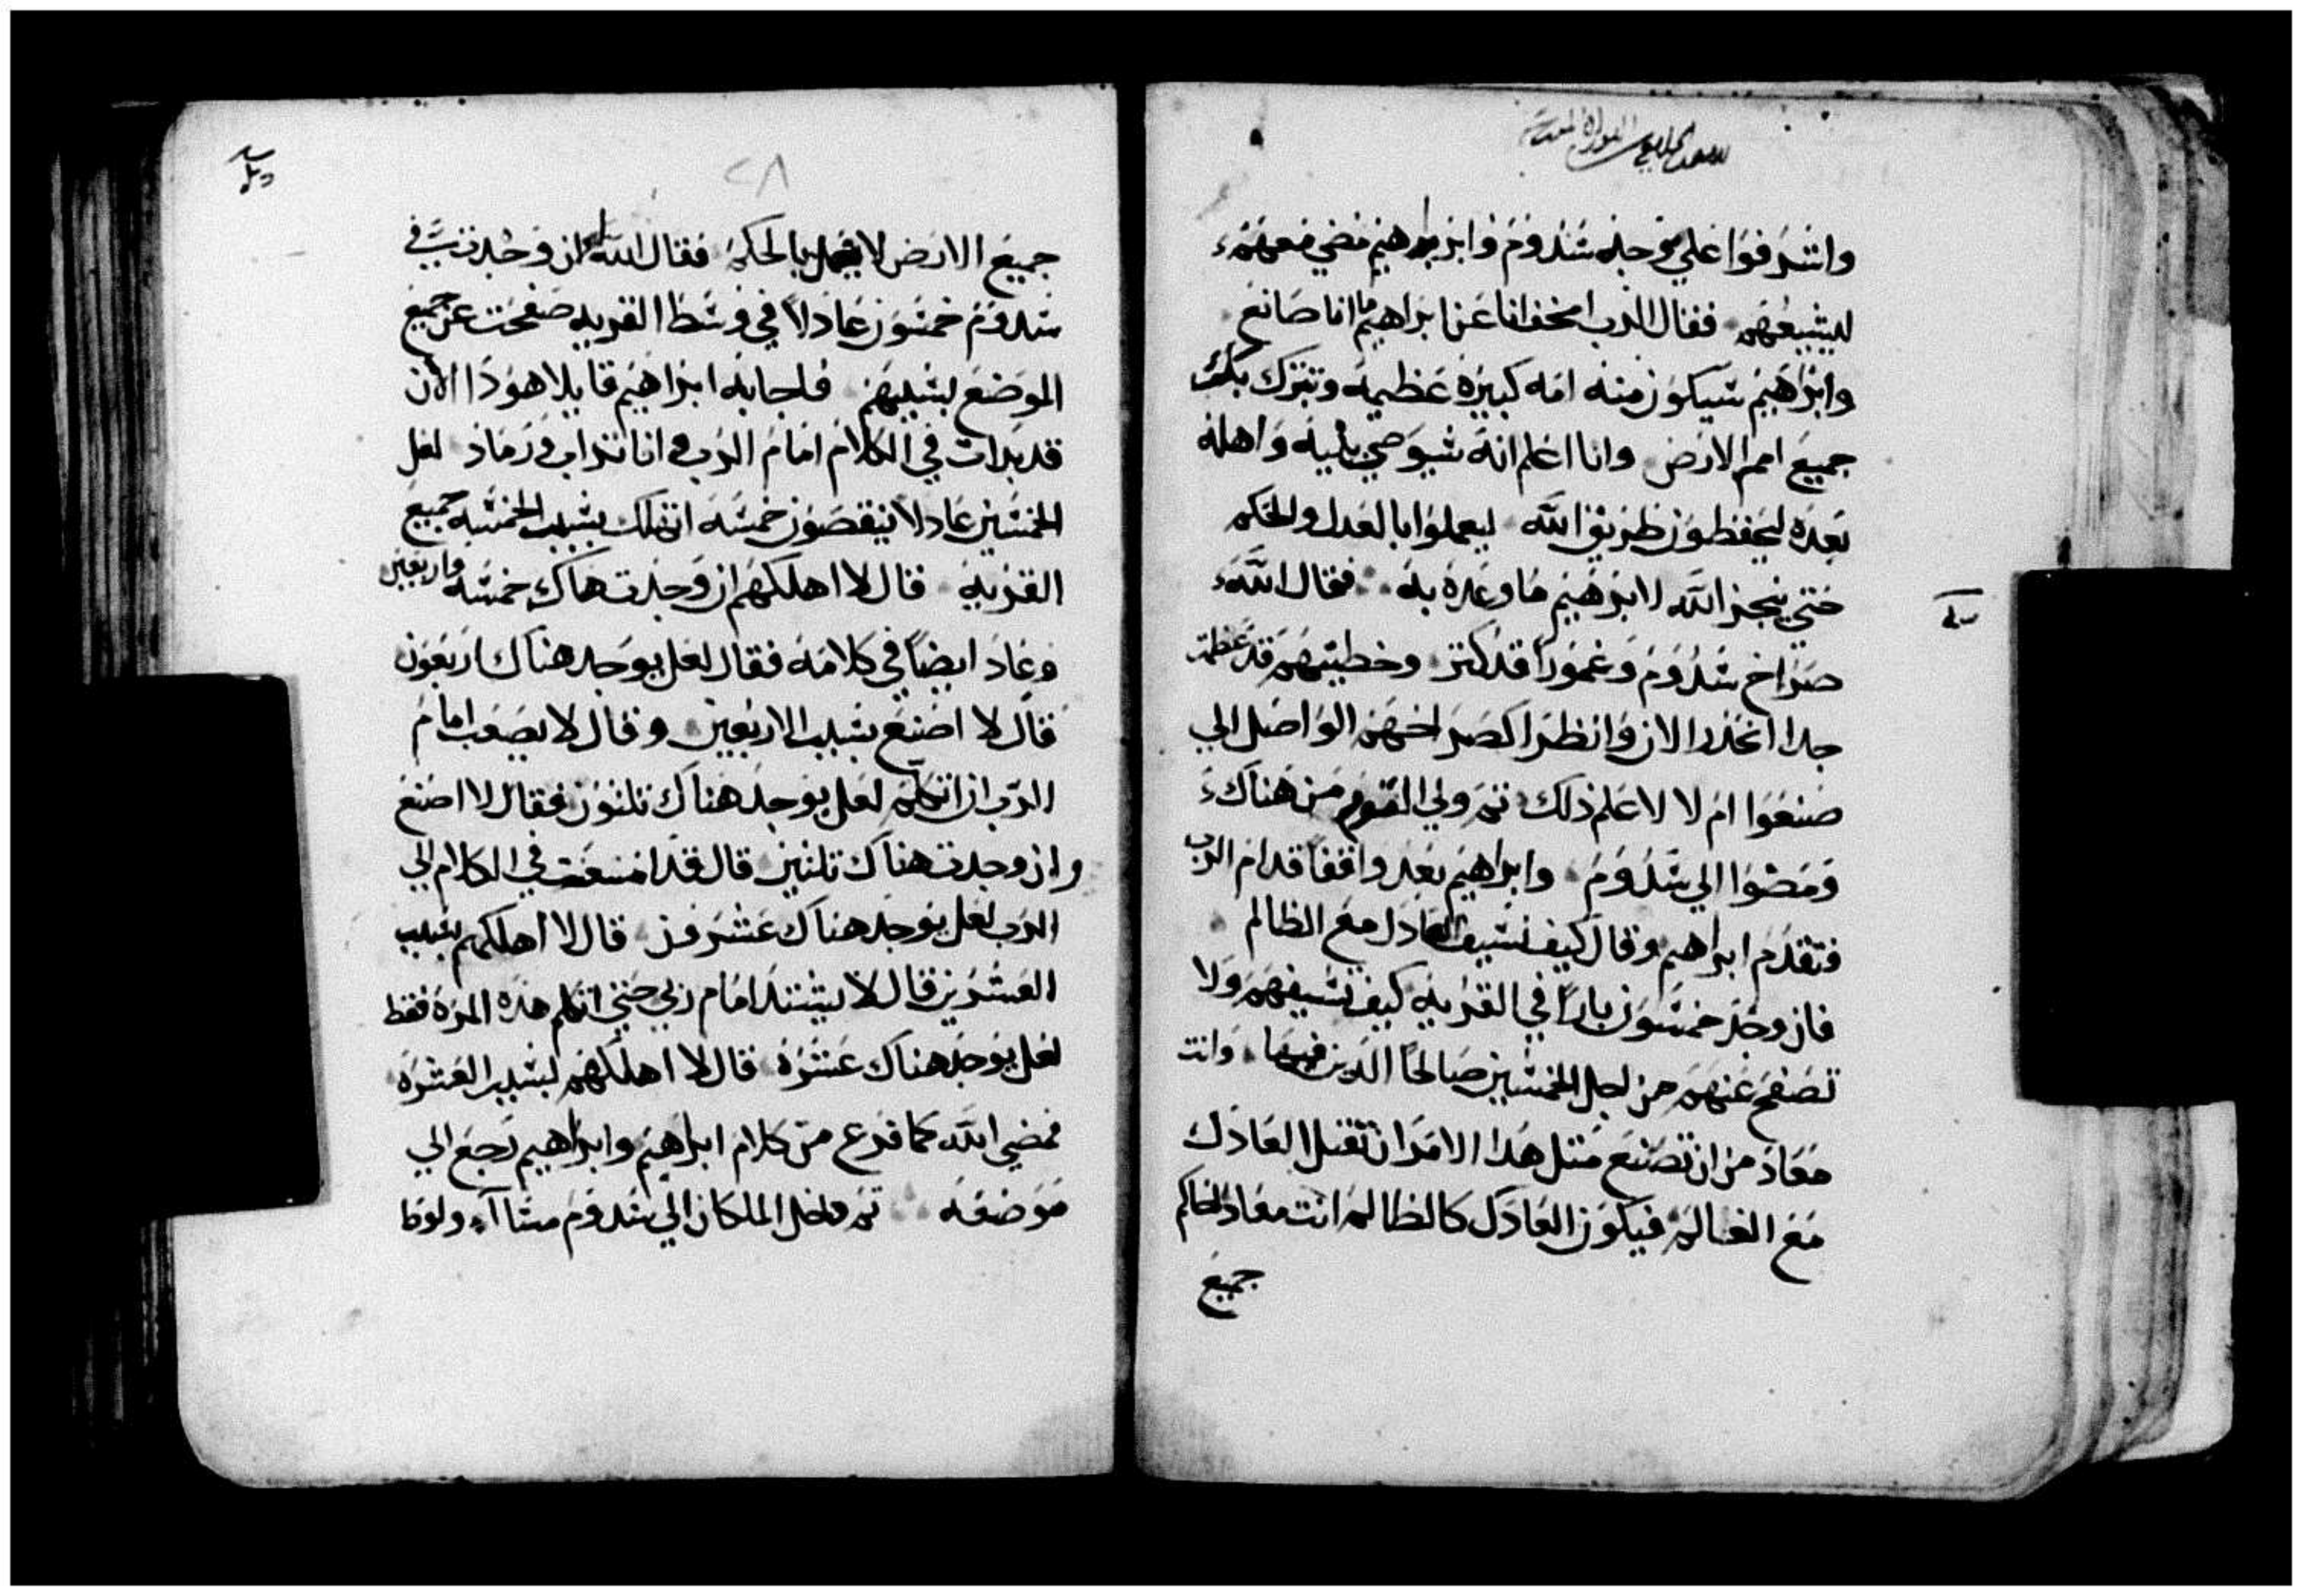 واشرفوا علي وجه سدوم وابرهيم مضي معهم
ليشيعهم فقال الرب امخف انا عن ابراهيم ما انا صانع
وابراهيم سيكون منه امه كبيره عظيمه وتتبرك بك
جميع امم الارض وانا اعلم انه سيوصي بنيه واهله
بعده ليحفظون طريق الله ليعملوا بالعدل والحكم
حتي ينجز الله لابرهيم ما وعده به فقال الله
صراخ سدوم وغمورا قد كتر وخطيتهم قد عظمت
جدا انحدر الان وانظر اكصراخهم الواصل الي
صنعوا ام لا لاعلم ذلك تم ولي القوم من هناك
ومضوا الي سدوم وابراهيم بعد واقفا قدام الرب
فتقدم ابراهيم وقال كيف تسيف العادل مع الظالم
فان وجد خمسون بارا في القريه كيف تسيفهم ولا
تصفح عنهم من اجل الخمسين صالحا الدين فيها وانت
معاد من ان تصنع متل هدا الامر ان تقتل العادل
مع الظالم فيكون العادل كالظالم انت معاد الحاكم
جميع
٢٨
جميع الارض لا يعمل بالحكم فقال الله ان وجدت في
سدوم خمسون عادلا في وسط القريه صفحت عن جميع
الموضع بسببهم فاجابه ابراهيم قايلا هودا الان
قد بدات في الكلام امام الرب وانا تراب ورماد لعل
الخمسين عادلا ينقصون خمسه اتهلك بسبب الخمسه جميع
القريه قال لا اهلكهم ان وجدت هناك خمسه واربعين
وعاد ايضا في كلامه فقال لعل يوجد هناك اربعون
قال لا اصنع بسبب الاربعين وقال لا يصعب امام
الرب ان اتكلم لعل يوجد هناك تلتون فقال لا اصنع
وان وجدت هناك تلتين قال قد امنعت في الكلام الي
الرب لعل يوجد هناك عشرون قال لا اهلكهم بسبب
العشرين قال لا يشتد امام ربي حتي اتكلم هده المره فقط
لعل يوجد هناك عشره قال لا اهلكهم بسبب العشره
فمضي الله كما فرغ من كلام ابراهيم وابراهيم رجع الي
موضعه تم دخل الملكان الي سدوم مساا ولوط